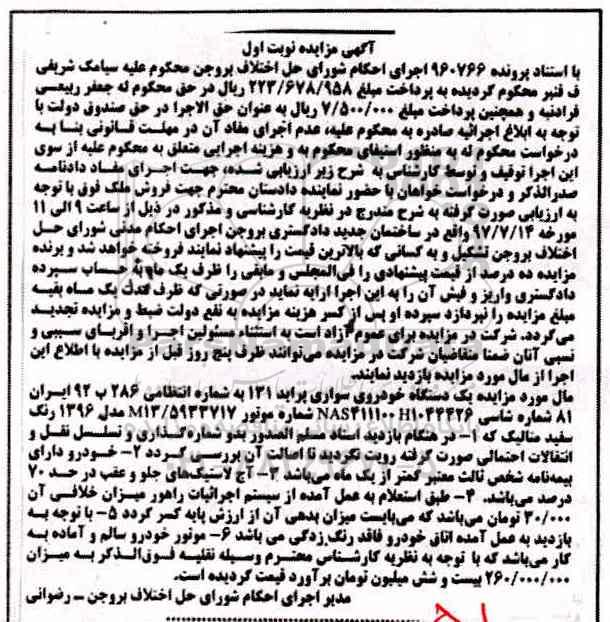 آگهی مزایده نوبت اول
با استناد پرونده ۹۶۰۷۶۶ اجرای احکام شورای حل اختلاف بروجن محکوم علیه سیامک شریفی
ف قنبر محکوم گردیده به پرداخت مبلغ ۲۲۳/۶۷۸/۹۵۸ ریال در حق محکوم له جعفر ربیعی
فرادنبه و همچنین پرداخت مبلغ ۷/۵۰۰/۰۰۰ ریال به عنوان حق الاجرا در حق صندوق دولت با
توجه به ابلاغ اجرائیه صادره به محکوم علیه، عدم اجرای مفاد آن در مهلت قانونی بنا به
درخواست محکوم له به منظور استیفای محکوم به و هزینه اجرایی متعلق به محکوم علیه از سوی
این اجرا توقیف و توسط کارشناس به شرح زیر ارزیابی شده، جهت اجرای مفاد دادنامه
صدرالذکر و درخواست خواهان با حضور نماینده دادستان محترم جهت فروش ملک فوق با توجه
به ارزیابی صورت گرفته به شرح مندرج در نظریه کارشناسی و مذکور در ذیل از ساعت ۹ الی ۱۱
مورخه ۹۷/۷/۱۴ واقع در ساختمان جدید دادگستری بروجن اجرای احکام مدنی شورای حل
اختلاف بروجن تشکیل و به کسانی که بالاترین قیمت را پیشنهاد نمایند فروخته خواهد شد و برنده
مزایده ده درصد از قیمت پیشنهادی را فی‌المجلس و مابقی را ظرف یک ماه به حساب سپرده
دادگستری واریز و فیش آن را به این اجرا ارایه نماید در صورتی که ظرف مدت یک ماه بقیه
مبلغ مزایده را نپردازد سپرده او پس از کسر هزینه مزایده به نفع دولت ضبط و مزایده تجدید
می‌گردد. شرکت در مزایده برای عموم آزاد است به استثناء مسئولین اجرا و اقربای سببی و
نسبی آنان ضمنا متقاضیان شرکت در مزایده می‌توانند ظرف پنج روز قبل از مزایده با اطلاع این
اجرا از مال مورد مزایده بازدید نمایند.
مال مورد مزایده یک دستگاه خودروی سواری پراید ۱۳۱ به شماره انتظامی ۲۸۶ ب ۹۲ ایران
۸۱ شماره شاسی NAS۴۱۱۱۰۰H۱۰۴۴۴۲۶ شماره موتور M۱۳/۵۹۳۳۷۱۷ مدل ۱۳۹۶ رنگ
سفید متالیک که ۱- در هنگام بازدید اسناد مسلم الصدور بدو شماره‌گذاری و تسلسل نقل و
انتقالات احتمالی صورت گرفته رویت نگردید تا اصالت آن بررسی گردد ۲- خودرو دارای
بیمه‌نامه شخص ثالث معتبر کمتر از یک ماه می‌باشد ۳- آج لاستیک‌های جلو و عقب در حد ۷۰
درصد می‌باشد. ۴- طبق استعلام به عمل آمده از سیستم اجرائیات راهور میزان خلافی آن
۳۰/۰۰۰ تومان می‌باشد که می‌بایست میزان بدهی آن از ارزش پایه کسر گردد ۵- با توجه به
بازدید به عمل آمده اتاق خودرو فاقد رنگ‌زدگی می باشد ۶- موتور خودرو سالم و آماده به
کار می‌باشد که با توجه به نظریه کارشناس محترم وسیله نقلیه فوق‌الذکر به میزان
۲۶۰/۰۰۰/۰۰۰ بیست و شش میلیون تومان برآورد قیمت گردیده است.
مدیر اجرای احکام شورای حل اختلاف بروجن ـ رضوانی